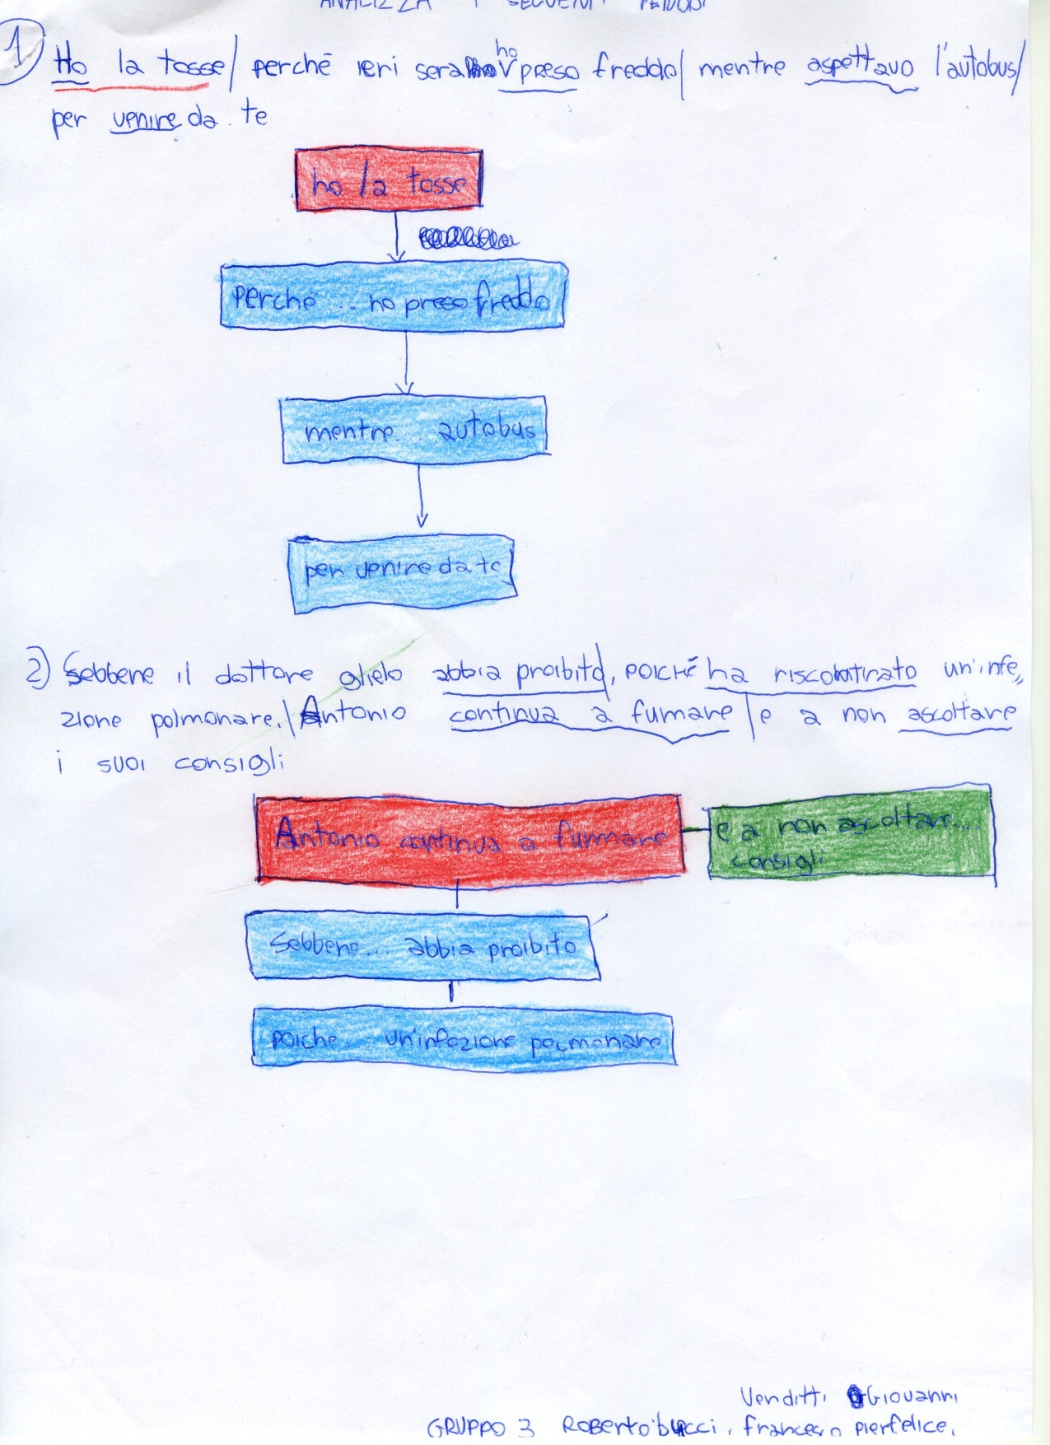 ANALIZZA I SEGUENTI PERIODI
1) Ho la tosse/ perché ieri sera ho preso freddo/ mentre aspettavo l'autobus/
per venire da te
ho la tosse
perché ... ho preso freddo
mentre.. autobus
per venire da te
2) Sebbene il dottore glielo abbia proibito, POICHÉ ha riscontrato un'infe„
zione polmonare,/Antonio continua a fumare/e a non ascoltare
i suoi consigli
Antonio continua a fumare
e a non ascoltare...
consigli
Sebbene... abbia proibito
poiche un'infezione polmonare
Venditti Giovanni
GRUPPO 3 Roberto bucci, francesco pierfelice,